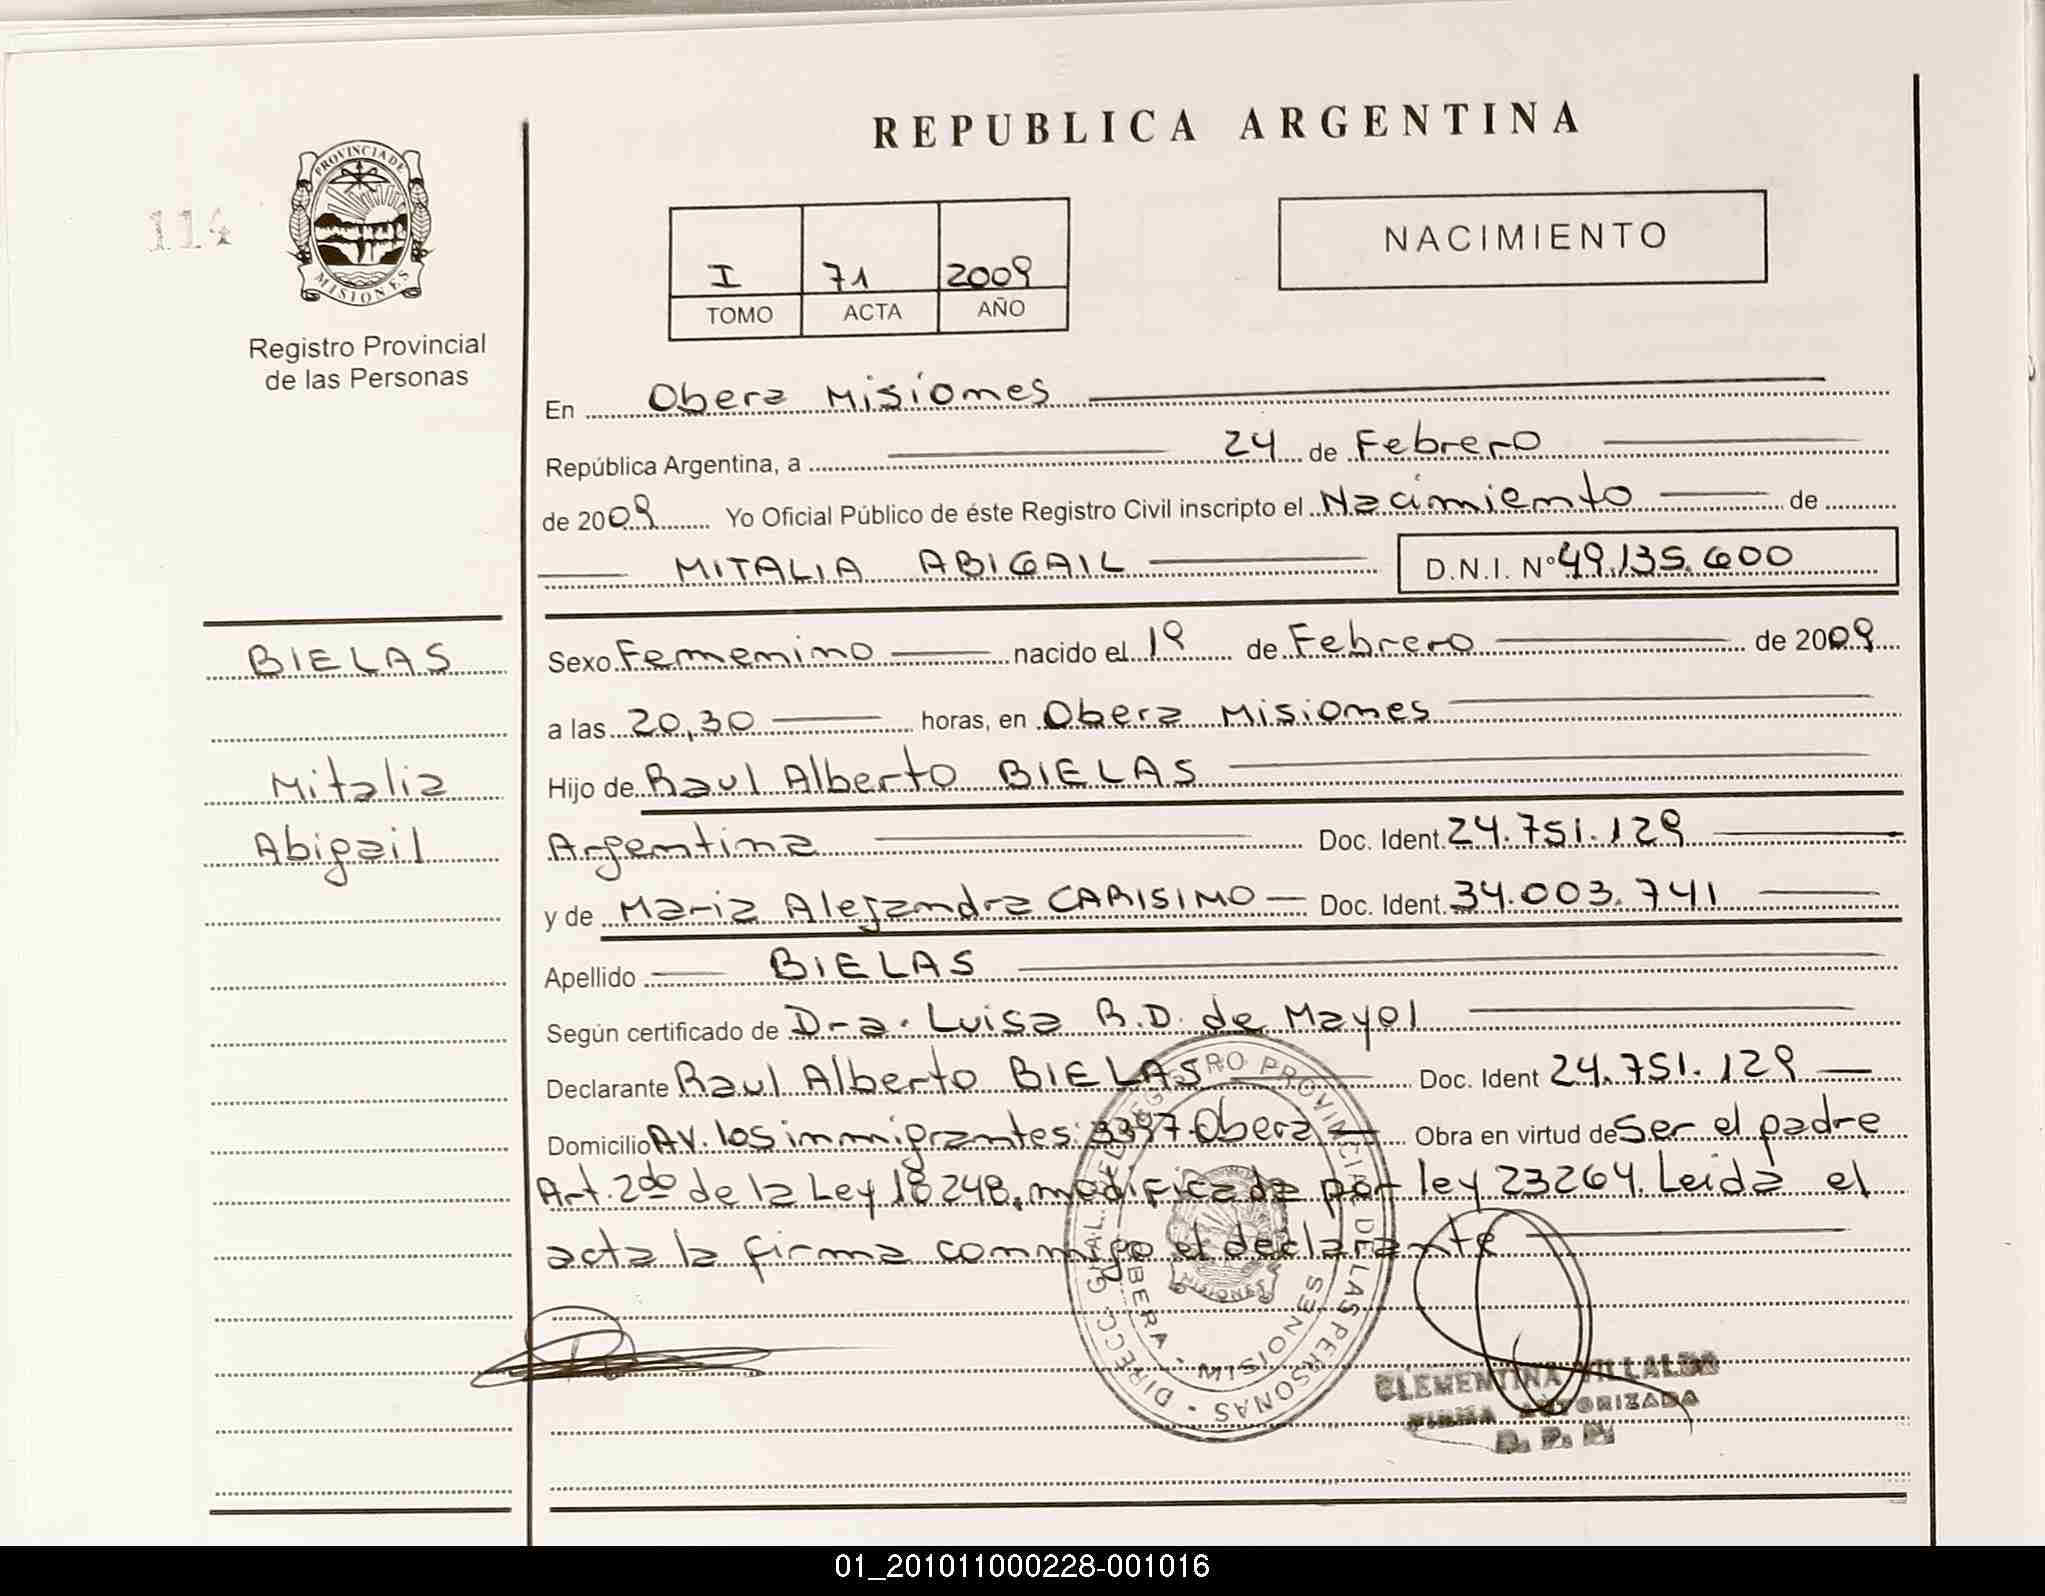 REPUBLICA ARGENTINA
114
PROVINCIA DE
MISIONES
Registro Provincial
de las Personas
NACIMIENTO
I 71 2009
TOMO ACTA AÑO
En Obera Misiones
República Argentina, a 24 de Febrero
de 2009 Yo Oficial Público de éste Registro Civil inscripto el Nacimiento de
MITALIA ABIGAIL D.N.I. Nº 49.135.600
BIELAS
Mitalia
Abigail
Sexo Femenino nacido el 19 de Febrero de 2009
a las 20,30 horas, en Obera Misiones
Hijo de Raul Alberto BIELAS
Argentina Doc. Ident. 24.751.129
y de Maria Alejandra CARISIMO Doc. Ident. 34.003.741
Apellido BIELAS
Según certificado de Dra. Luisa R.D. de Mayol
Declarante Raul Alberto BIELAS Doc. Ident 24.751.129
Domicilio AV. los inmigrantes: 3397 Obera Obra en virtud de Ser el padre
Art. 2do de la Ley 18248, modificada por ley 23264. Leida el
acta la firma conmigo el declarante
DIRECC. GRAL. DEL REGISTRO PROVINCIAL DE LAS PERSONAS
OBERA - MISIONES
MISIONES
CLEMENTINA VILLALBA
FIRMA AUTORIZADA
01_201011000228-001016